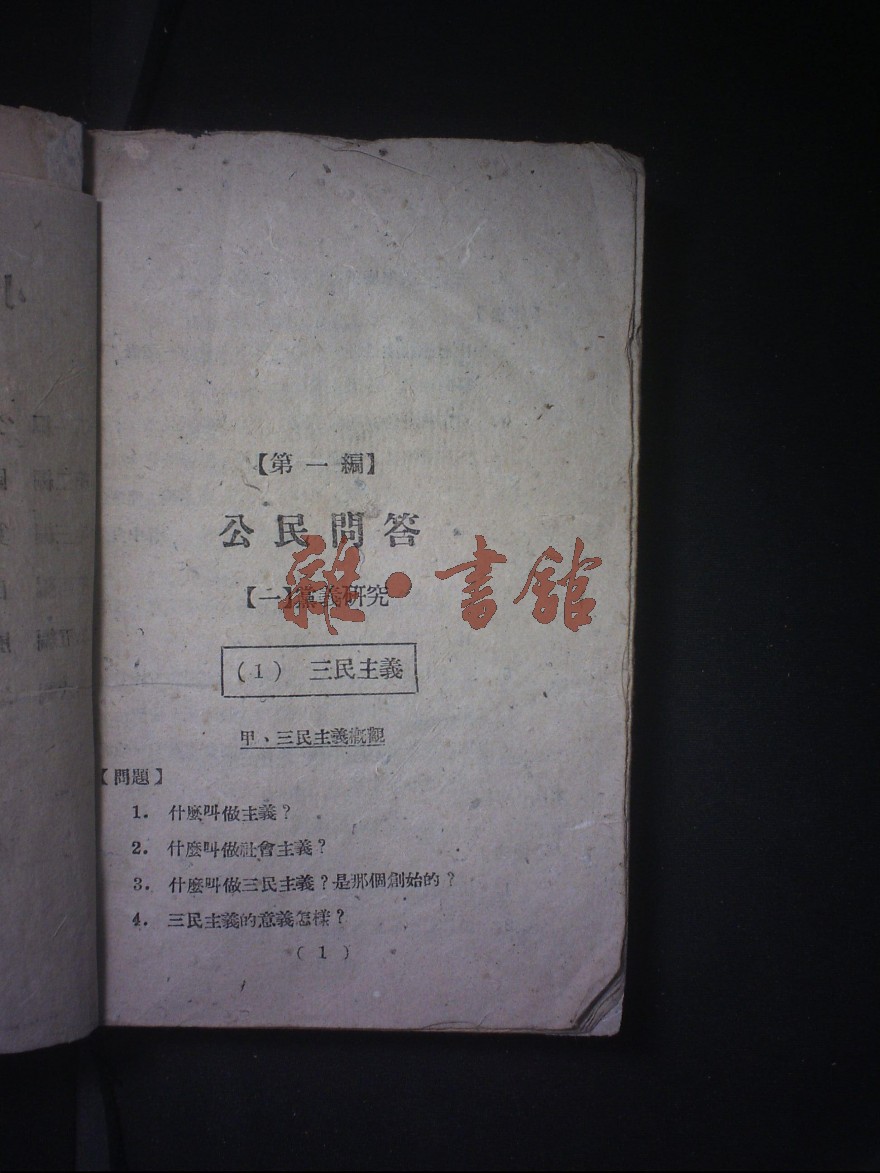 【第一編】
公民問答
【一】黨義研究
雜·書館
(1) 三民主義
甲、三民主義概觀
【問題】
1. 什麼叫做主義?
2. 什麼叫做社會主義?
3. 什麼叫做三民主義?是那個創始的?
4. 三民主義的意義怎樣?
(1)